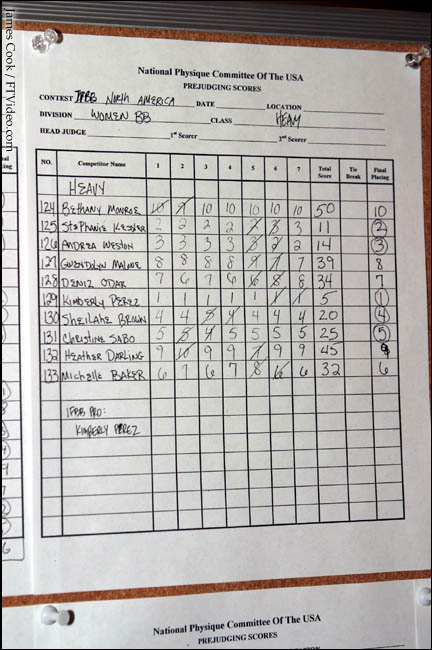 James Cook / FTVideo.com
National Physique Committee Of The USA
PREJUDGING SCORES
CONTEST IFBB North America DATE LOCATION
DIVISION WOMEN BB CLASS HEAVY
HEAD JUDGE 1st Scorer 2nd Scorer
NO. Competitor Name 1 2 3 4 5 6 7 Total Score Tie Break Final Placing
HEAVY
124 BETHANY MONROE 10 9 10 10 10 10 10 50 10
125 STEPHANIE KESSLER 2 2 2 2 3 11 2
126 ANDREA WESTON 3 3 3 3 2 2 14 3
127 GWENDOLYN MALONE 8 8 8 8 9 7 7 39 8
128 DENIZ ODAR 7 6 7 6 6 8 8 34 7
129 KIMBERLY PEREZ 1 1 1 1 1 1 1 5 1
130 SHEILAHE BROWN 4 4 5 4 4 4 4 20 4
131 CHRISTINE SABO 5 8 4 5 5 5 5 25 5
132 HEATHER DARLING 9 10 9 9 7 9 9 45 9
133 MICHELLE BAKER 6 7 6 7 8 6 6 32 6
IFBB PRO:
KIMBERLY PEREZ
National Physique Committee Of The USA
PREJUDGING SCORES